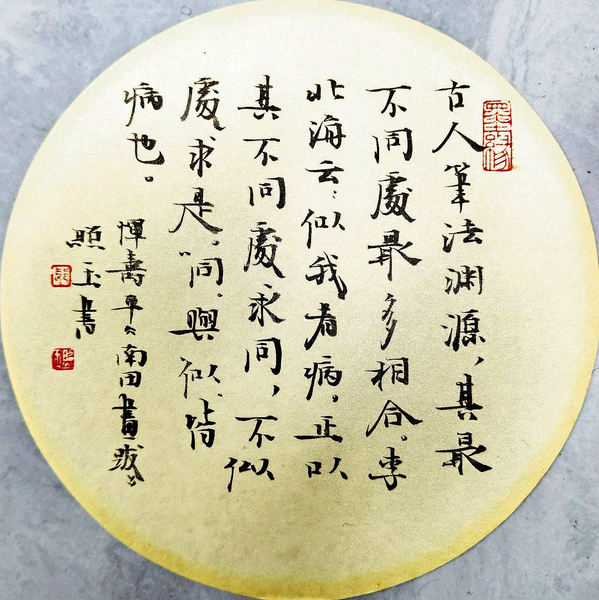 古人筆法渊源，其最
不同處最多相合。李
北海云：似我者病，正以
其不同處求同，不似
處求是。"同"與似，皆
病也。
惲壽平《南田畫跋》
照玉書